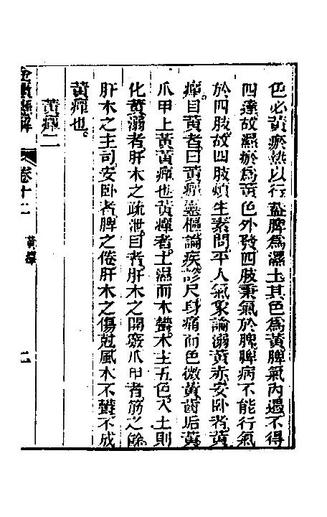 色必黃瘀熱以行蓋脾爲濕土其色爲黃脾氣內遏不得
四達故濕瘀爲黃色外發四肢秉氣於脾脾病不能行氣
於四肢故四肢煩生素問平人氣象論溺黃赤安卧者黃
疸目黃者曰黃疸靈樞論疾診尺身痛而色微黃齒垢黃
爪甲上黃黃疸也黃疸者土濕而木鬱木主五色入土則
化黃溺者肝木之疏泄目者肝木之開竅爪甲者筋之餘
肝木之主司安卧者脾之倦肝木之傷尅風木不鬱不成
黃疸也
黃疸二
金匱懸解 卷十二 黃疸 二